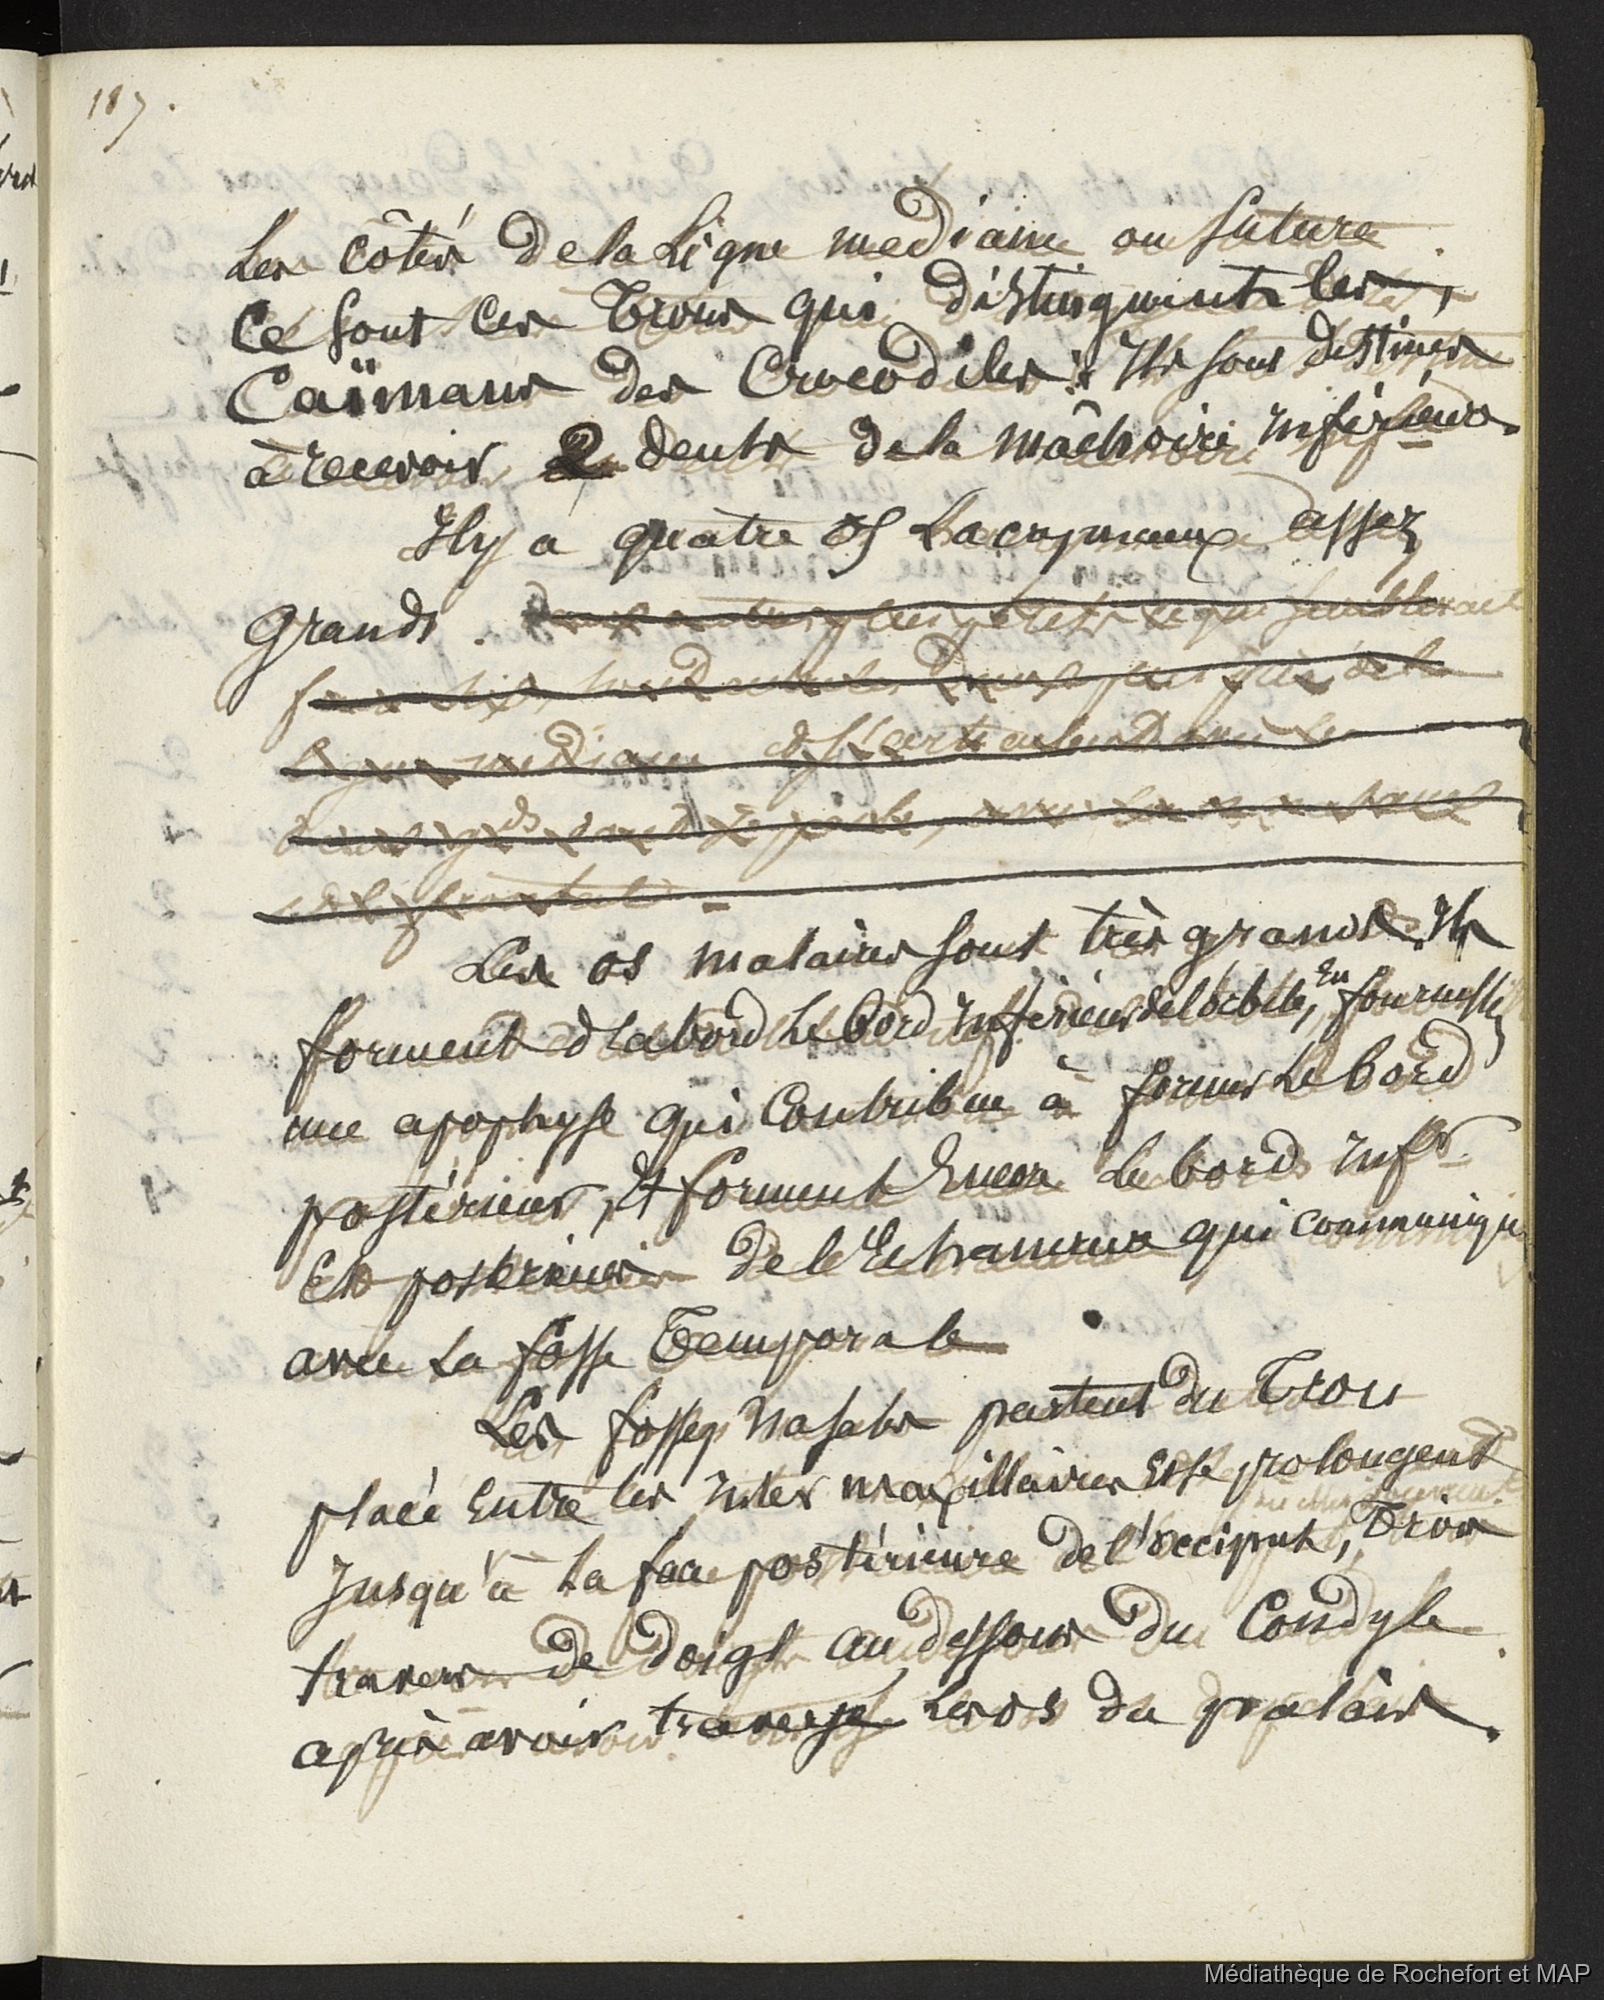 187.
Les côtés de la Ligne mediane ou suture
Ce sont ces Trous qui distinguent les
Caïmans des Crocodiles : Ils sont destinés
à recevoir 2 dents de la mâchoire inférieure.
Il y a quatre os Lacrymaux assez
grands. plus petits ce qui semblerait
ligne mediane
deux gds
Les os malaires sont très grands. Ils
forment d'abord Le bord inférieur de l'orbite, En fournissent
une apophyse qui Contribue à former Le bord
postérieur, et forment Encore Le bord infr
Et postérieur de l'Echancrure qui communique
avec La fosse Temporale
Les fosses Nasales partent du Trou
placé Entre les Inter maxillaires Et se prolongent
Jusqu'à La face postérieure de l'occiput, Trois
travers de doigt au dessous du Condyle
après avoir traversé Les os du palais.
Médiathèque de Rochefort et MAP